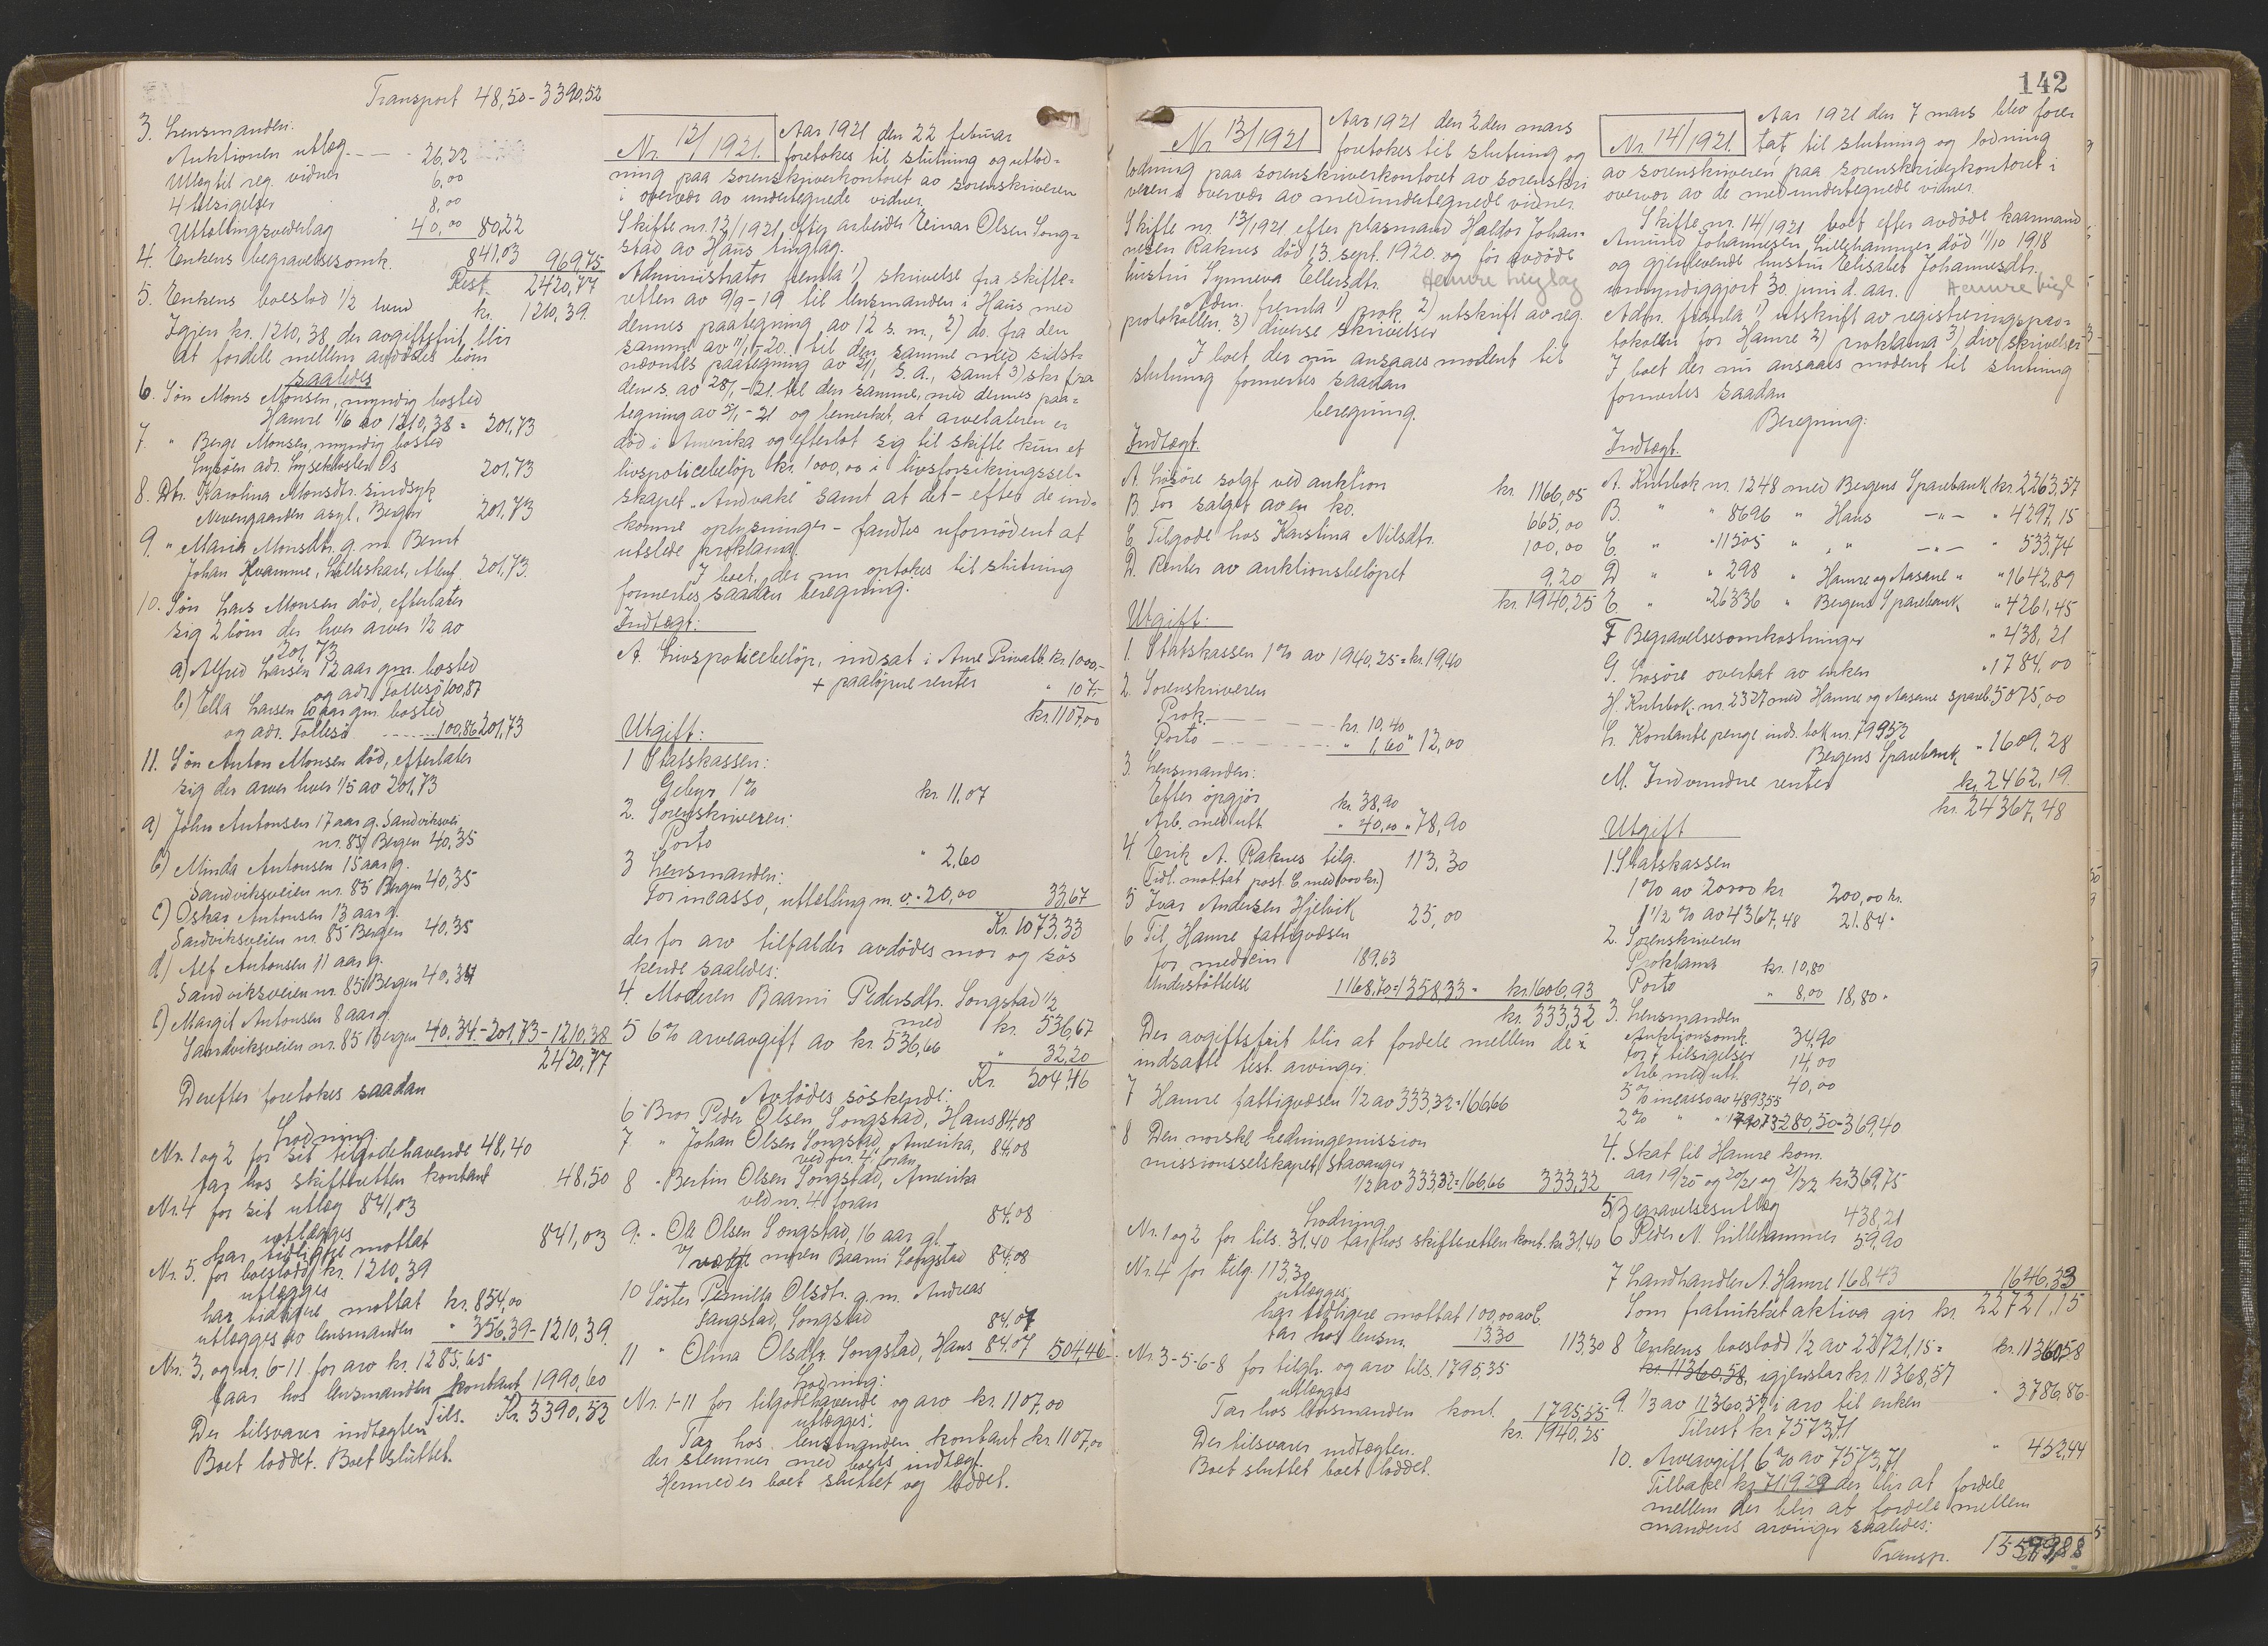 Transport 48,50 - 3390,52
3. Lensmanden:
Auktionen utlæg 26,22
Utlæg til reg. vidner 6,00
4 tilsigelser 8,00
Uttællingsvederlag 40,00 80,22
4. Enkens begravelsesomk. 841,03 969,75
Rest. 2420,77
5. Enkens boeslod 1/2 herav kr. 1210,39.
Igjen kr. 1210,38 der avgiftsfrit blir
at fordele mellem avdødes børn
saaledes
6. Søn Mons Monsen, myndig bosted
Hamre 1/6 av 1210,38 = 201,73
7. " Berge Monsen, myndig bosted
Lysøen adr. Lyseklosler Os 201,73
8. Dtr. Karolina Monsdtr. sindsyk
Nevengaarden asyl, Bergen 201,73
9. " Maria Monsdtr. g. m. Bernt
Johan Kvamme, Lilleskare, Alent. 201,73.
10. Søn Lars Monsen død, efterlater
sig 2 børn der hver arver 1/2 av
201,73
a) Alfred Larsen 12 aar gm. bosted
og adr. Follesø 100,87
b) Ella Larsen 10 aar gm. bosted
og adr. Follesø 100,86 201,73
11. Søn Anton Monsen død, efterlater
sig der arver hver 1/5 av 201,73
a) John Antonsen 17 aar g. Sandviksvei.
nr. 85 Bergen 40,35
b) Minda Antonsen 15 aar g.
Sandviksveien nr. 85 Bergen 40,35
c) Oskar Antonsen 13 aar g.
Sandviksveien nr. 85 Bergen 40,35
d) Alf Antonsen 11 aar g.
Sandviksveien nr. 85 Bergen 40,34
e) Margit Antonsen 8 aar g.
Sandviksveien nr. 85 Bergen 40,34 - 201,73 - 1210,38
2420,77
Derefter foretokes saadan
Lodning.
Nr. 1 og 2 for sit tilgodehavende 48,40
tar hos skifteretten kontant 48,50
Nr. 4 for sit utlæg 841,03
utlægges
har tidligere mottat 841,03
Nr. 5. for boeslodd kr. 1210,39
utlægges
har tidligere mottat kr. 854,00
utlægges av lensmanden " 356,39 - 1210,39.
Nr. 3, og nr. 6-11 for arv kr. 1285,65
faar hos lensmanden kontant 1990,60
Tils. Kr. 3390,52
Der tilsvarer indtægten
Boet loddet. Boet sluttet.
Nr. 12/1921.
Aar 1921 den 22 februar
foretokes til slutning og utlod-
ning paa sorenskriverkontoret av sorenskriveren
i overvær av undertegnede vidner.
Skifte nr. 12/1921 efter arbeider Einar Olsen Song-
stad av Haus tinglag.
Administrator fremla 1) skrivelse fra skifte-
retten av 9/9-19 til lensmanden i Haus med
dennes paategning av 12 s. m., 2) do. fra den
samme av 11/1-20. til den samme med sidst-
nævntes paategning av 21/1 s. a., samt 3) skr. fra
dens. av 28/1-21. til den samme, med dennes paa-
tegning av 5/1-21 og bemerket, at arvelateren er
død i Amerika og efterlot sig til skifte kun et
livspolicebeløp kr. 1000,00 i livsforsikringssel-
skapet "Andvake" samt at det - efter de ind-
komne oplysninger - fandtes ufornødent at
utstede proklama.
I boet, der nu optokes til slutning
formertes saadan beregning.
Indtægt:
A. Livspolicebeløp, indsat i Arne Privatb. kr. 1000,-
+ paaløpne renter " 107,-
kr. 1107,00
Utgift:
1 Statskassen:
Gebyr 1% kr. 11,07
2. Sorenskriveren:
Porto " 2,60
3 Lensmanden:
For incasso, uttælling m. v. - 20,00 33,67
Kr. 1073,33
der for arv tilfalder avdødes mor og søs
kende saaledes:
4. Moderen Baarni Pedersdtr. Songstad 1/2
med kr. 536,67
5 6% arveavgift av kr. 536,66 " 32,20
Kr. 504,46
Avdødes søskende:
6 - Bror Peder Olsen Songstad, Haus 84,08
7. " Johan Olsen Songstad, Amerika, 84,08
ved nr. 4 foran
8 - Bertin Olsen Songstad, Amerika
ved nr. 4 foran 84,08
9. - Ole Olsen Songstad, 16 aar gl.
v/ værge moren Baarni Songstad 84,08
10 Søster Pernilla Olsdtr. g. m. Andreas
Tangstad, Songstad 84,07
11 " Olina Olsdtr. Songstad, Haus 84,07 504,46
Lodning:
Nr. 1-11 for tilgodehavende og arv kr. 1107,00
utlægges:
Tar hos lensmanden kontant kr. 1107,00
der stemmer med boets indtægt.
Hermed er boet sluttet og loddet.
142
Nr 13/1921
Aar 1921 den 2den mars
foretokes til slutning og
lodning paa sorenskriverkontoret av sorenskri
veren i overvær av medundertegnede vidner.
Skifte nr. 13/1921 efter plasmand Haldor Johan-
nesen Raknes død 13. sept. 1920. og før avdøde
hustru Synneva Ellersdtr. Hamre tinglag
Adm. fremla 1) prok. 2) utskrift av reg.
protokollen. 3) diverse skrivelser
I boet der nu ansaaes modent til
slutning formertes saadan
beregning.
Indtægt.
A. Løsøre solgt ved auktion kr. 1166,05
B. For salget av en ko. 665,00
C. Tilgode hos Karstina Nilsdtr. 100,00
D. Renter av auktionsbeløpet 9,20
kr. 1940,25
Utgift:
1. Statskassen 1% av 1940,25 = kr. 19,40
2. Sorenskriveren
Prok. kr. 10,40
Porto " 1,60 " 12,00
3. Lensmanden:
Efter opgjør kr. 38,90
Arb. med utt. " 40,00 " 78,90
4. Erik A. Raknes tilg. 113,30
(Tidl. mottat post C. med 100 kr.)
5 Ivar Andersen Hjelvik 25,00
6 Til Hamre fattigvæsen
for medicin 189,63
Understøttelse 1168,70 = 1358,33 - kr. 1606,93
kr. 333,32
Der avgiftsfrit blir at fordele mellem de i
indsatte test. arvinger.
7 Hamre fattigvæsen 1/2 av 333,32 = 166,66
8 Den norske hedningemission
missionsselskapet, Stavanger
1/2 av 333,32 = 166,66 333,32
Lodning
Nr. 1 og 2 for tils. 31,40 tar hos skifteretten kont. kr. 31,40
Nr. 4 for tilg. 113,30
utlægges.
har tidligere mottat 100,00 avb.
tar hos lensm. 13,30 113,30
Nr. 3-5-6-8 for tilgh. og arv tils. 1795,35
utlægges
Tar hos lensmanden kont. 1795,55
kr. 1940,25
Der tilsvarer indtægten.
Boet sluttet boet loddet.
Nr. 14/1921.
Aar 1921 den 7 mars blev fore
tat til slutning og lodning
av sorenskriveren paa sorenskriverkontoret i
overvær av de medundertegnede vidner.
Skifte nr. 14/1921 boet efter avdøde kaarmand
Amund Johannesen, Lillehammer, død 11/10 1918
og gjenlevende hustru Elisabet Johannesdtr.
umyndiggjort 30. juni d. aar. Hamre tingl
Adm. fremla 1) utskrift av registreringspro-
tokollen for Hamre 2) proklama 3) div. skrivelser
I boet der nu ansaaes modent til slutning
formertes saadan
Beregning:
Indtægt.
A. Kuhbok nr. 1248 med Bergens Sparebank kr. 2263,57
B. " " 8696 " Haus -"- " 4297,15
C. " " 11505 " " -"- " 533,74
D " " 298 " Hamre og Aasane " " 1642,89
E. " " 26336 " Bergens Sparebank " 4261,45
F Begravelsesomkostninger " 438,21
G. Løsøre overtat av enken " 1784,00
H. Kuhbok. nr. 2327 med Hamre og Aasane spareb. 5075,00
L. Kontante penge inds. bok nr. 79952
Bergens Sparebank " 1609,28
M. Indvundne renter kr. 2462,19.
kr. 24367,48
Utgift
1. Statskassen
1% av 20000 kr 200,00 kr.
1 1/2 % av 4367,48 21,84 "
2. Sorenskriveren
Proklama kr. 10,80
Porto " 8,00 18,80 "
3. Lensmanden
Auktionsomk. 34,90
for 7 tilsigelser 14,00
Arb. med utt. 40,00
5% incasso av 4893,55
2% " " 280,50 - 369,40
4. Skat til Hamre kom.
aar 19/20 og 20/21 og 21/22 kr. 369,75
5 Begravelsesutlæg 438,21
6 Peder N. Lillehammer 59,90
7 Landhandler A. Hamre 168,43 1646,33
Som fratrukket aktiva gir kr. 22721,15
8 Enkens boeslodd 1/2 av 22721,15 = kr. 11360,58
kr. 11360,58, igjenstar kr. 11368,57
9. 1/3 av 11360,57 i arv til enken " 3786,86
Tilrest kr 7573,71
10. Arveavgift 6% av 7573,71 " 452,44
Tilbake kr. 7119,29 der blir at fordele
mellem der blir at fordele mellem
mandens arvinger saaledes:
Transp.